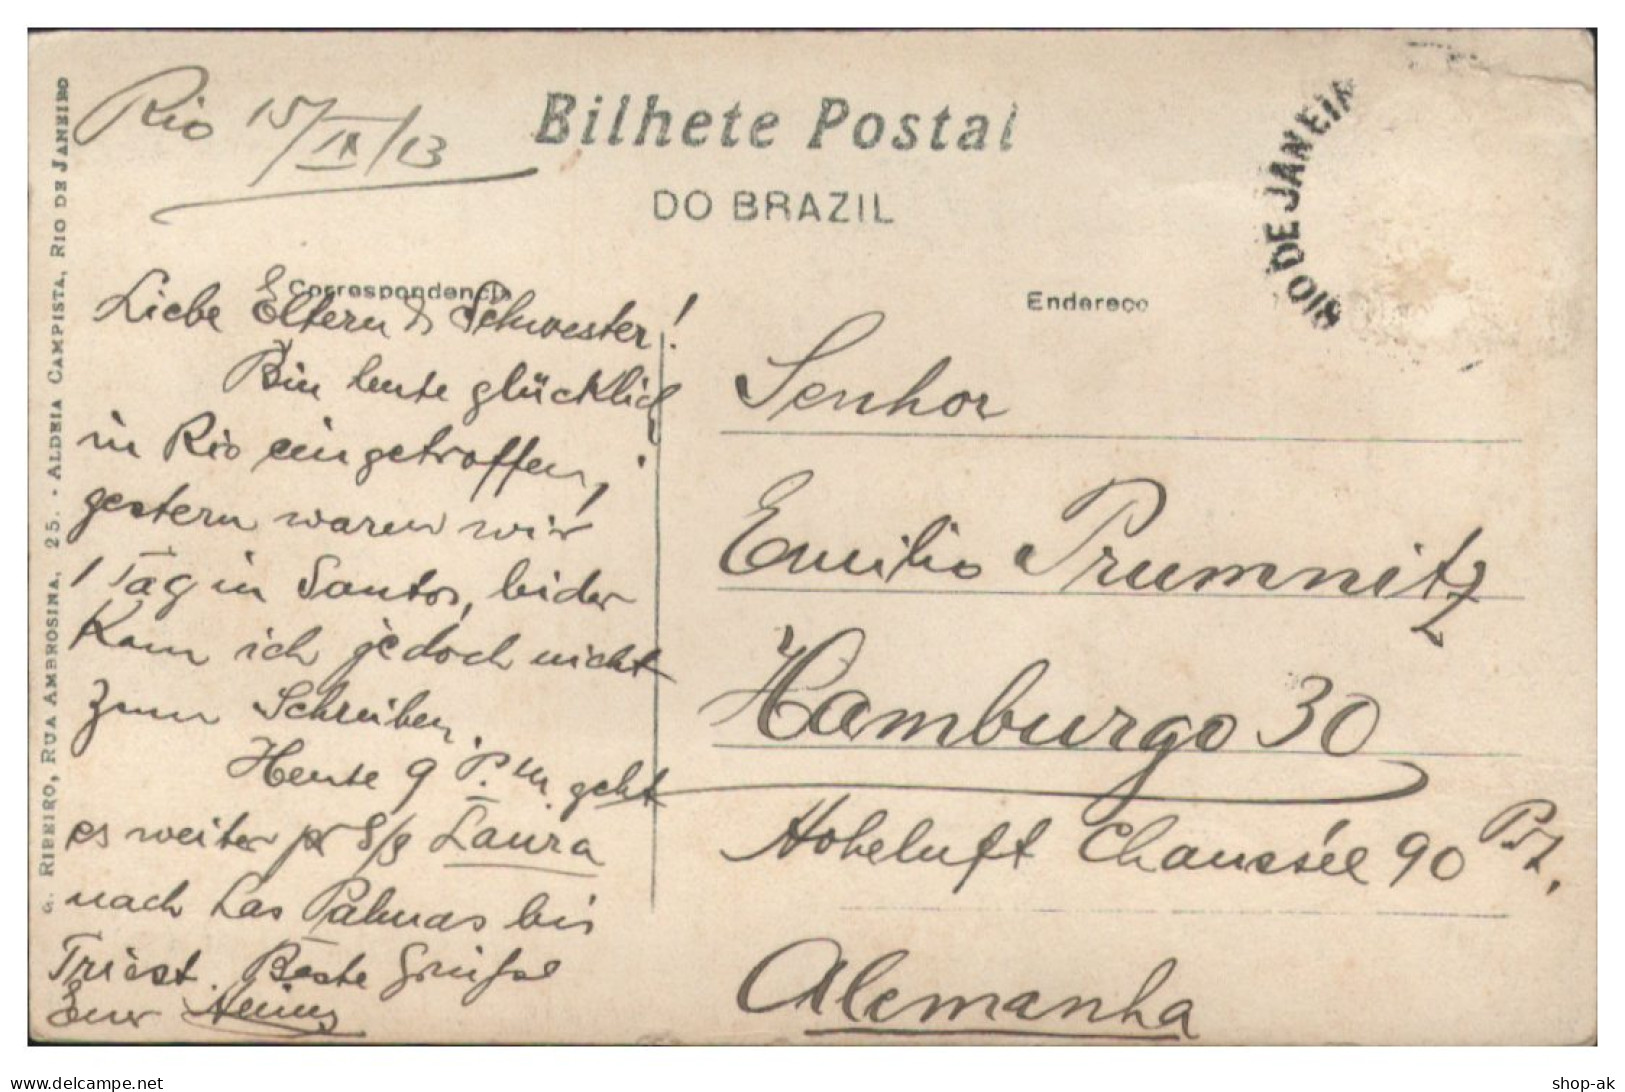 Rio 15/IX/13
Bilhete Postal
DO BRAZIL
RIO DE JANEIR
Correspondencia
Endereço
Liebe Eltern & Schwester!
Bin heute glücklich
in Rio eingetroffen,
gestern waren wir
1 Tag in Santos, leider
kam ich jedoch nicht
zum Schreiben.
Heute 9 P.M. geht
es weiter pr S/S Laura
nach Las Palmas bis
Triest. Beste Grüße
Euer Heinz
Senhor
Emilio Prumnitz
Hamburgo 30
Hoheluft Chaussée 90 Pt.
Alemanha
G. RIBEIRO, RUA AMBROSINA, 25. - ALDEIA CAMPISTA, RIO DE JANEIRO
https://www.delcampe.net
shop-ak